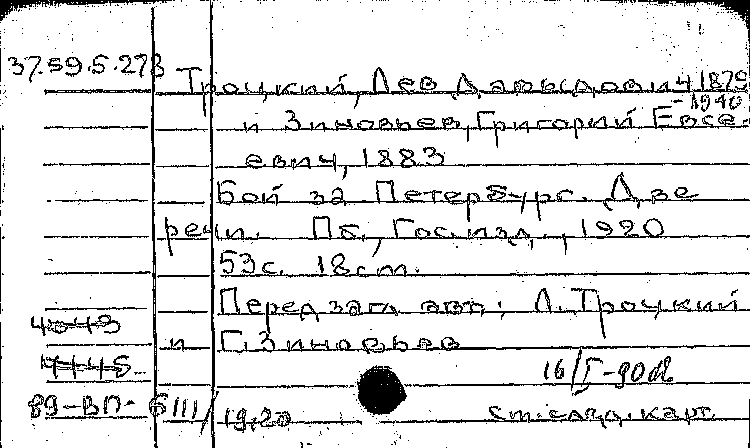 37.59.5.273
Троцкий, Лев Давыдович 1879
-1940
и Зиновьев, Григорий Евсе-
евич, 1883
Бой за Петербург. Две
речи. Пб., Гос.изд., 1920
53с. 18см.
Перед загл. авт.: Л. Троцкий
и Г. Зиновьев
16/I-90
89-ВП-6111/
19.20
карт.